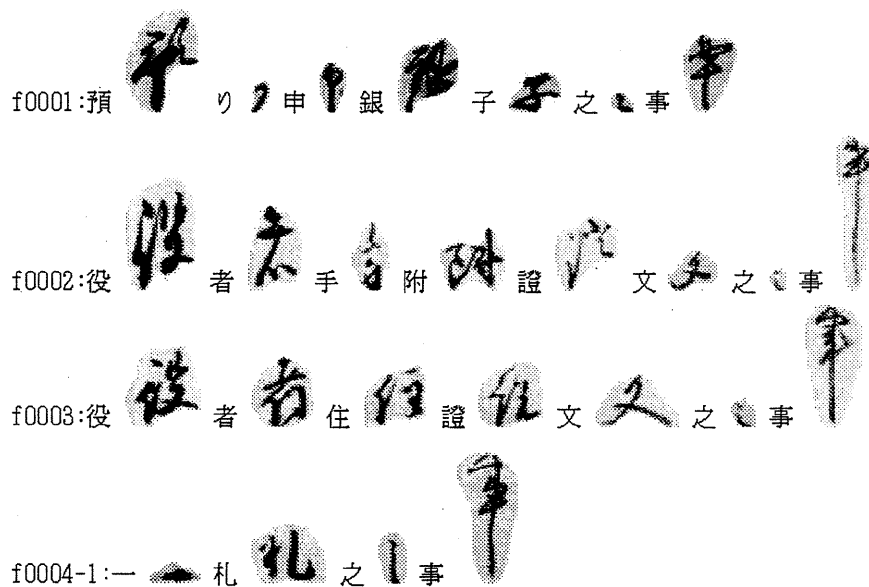 f0001:預り申銀子之事
f0002:役者手附證文之事
f0003:役者住證文之事
f0004-1:一札之事